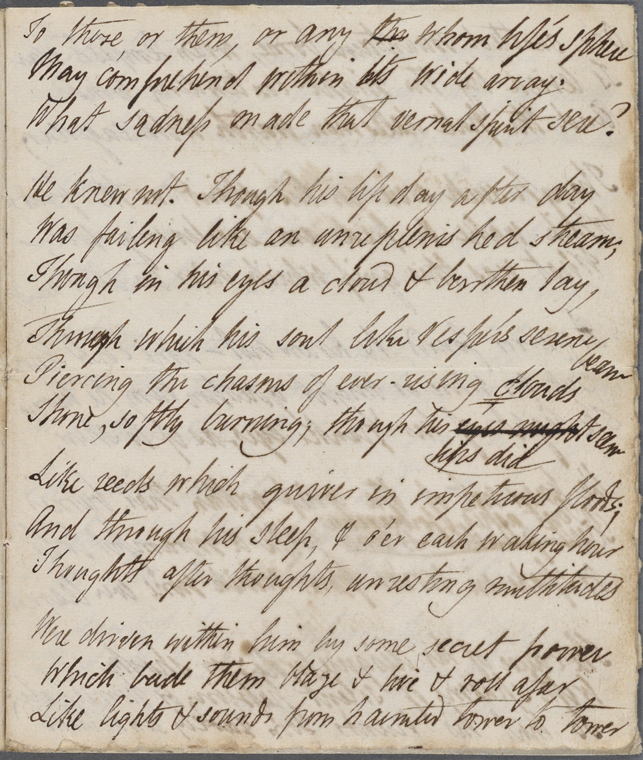 To those or them, or any the whom life's sphere
May comprehend within its wide array.
What sadness made that vernal spirit sere?
He knew not. Though his life day after day
Was failing like an unreplenished stream,
Though in his eyes a cloud & burthen lay,
Through which his soul like Vesper's serene beam
Piercing the chasms of ever-rising clouds
Shone, softly burning; though his eyes might seem
lips did
Like reeds which quiver in impetuous floods;
And through his sleep, & o'er each waking hour
Thoughts after thoughts, unresting multitudes
Were driven within him by some secret power
Which bade them blaze & live & roll afar
Like lights & sounds from haunted tower to tower